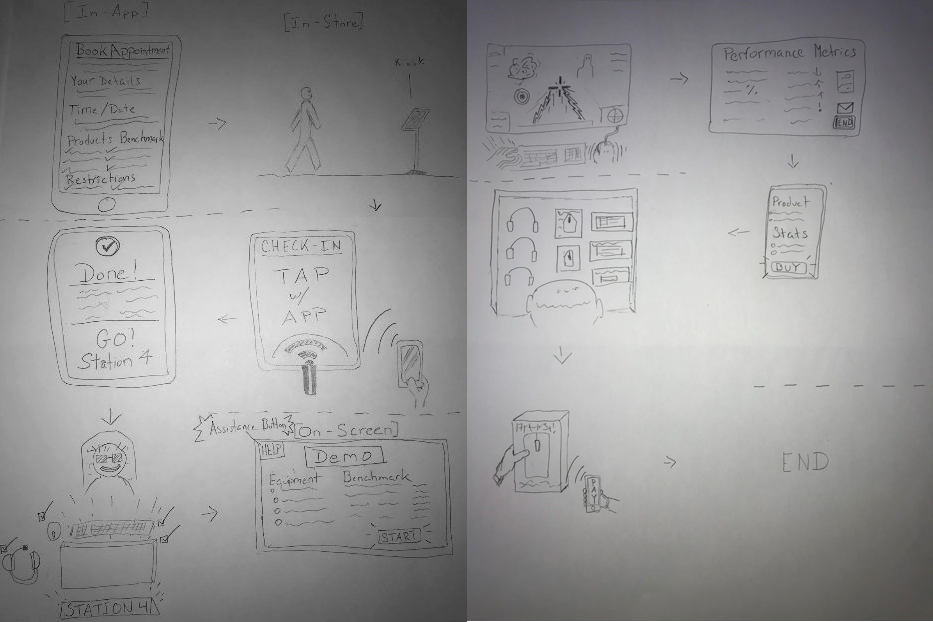 [In-App]
[In-Store]
Book Appointment
Your Details
Time/Date
Products Benchmark
Restrictions
Kiosk
CHECK-IN
TAP
w/
APP
Done!
GO!
Station 4
Assistance Button
[On-Screen]
HELP
Demo
Equipment Benchmark
START
STATION 4
Performance Metrics
%
END
Product
Stats
BUY
PAY
END